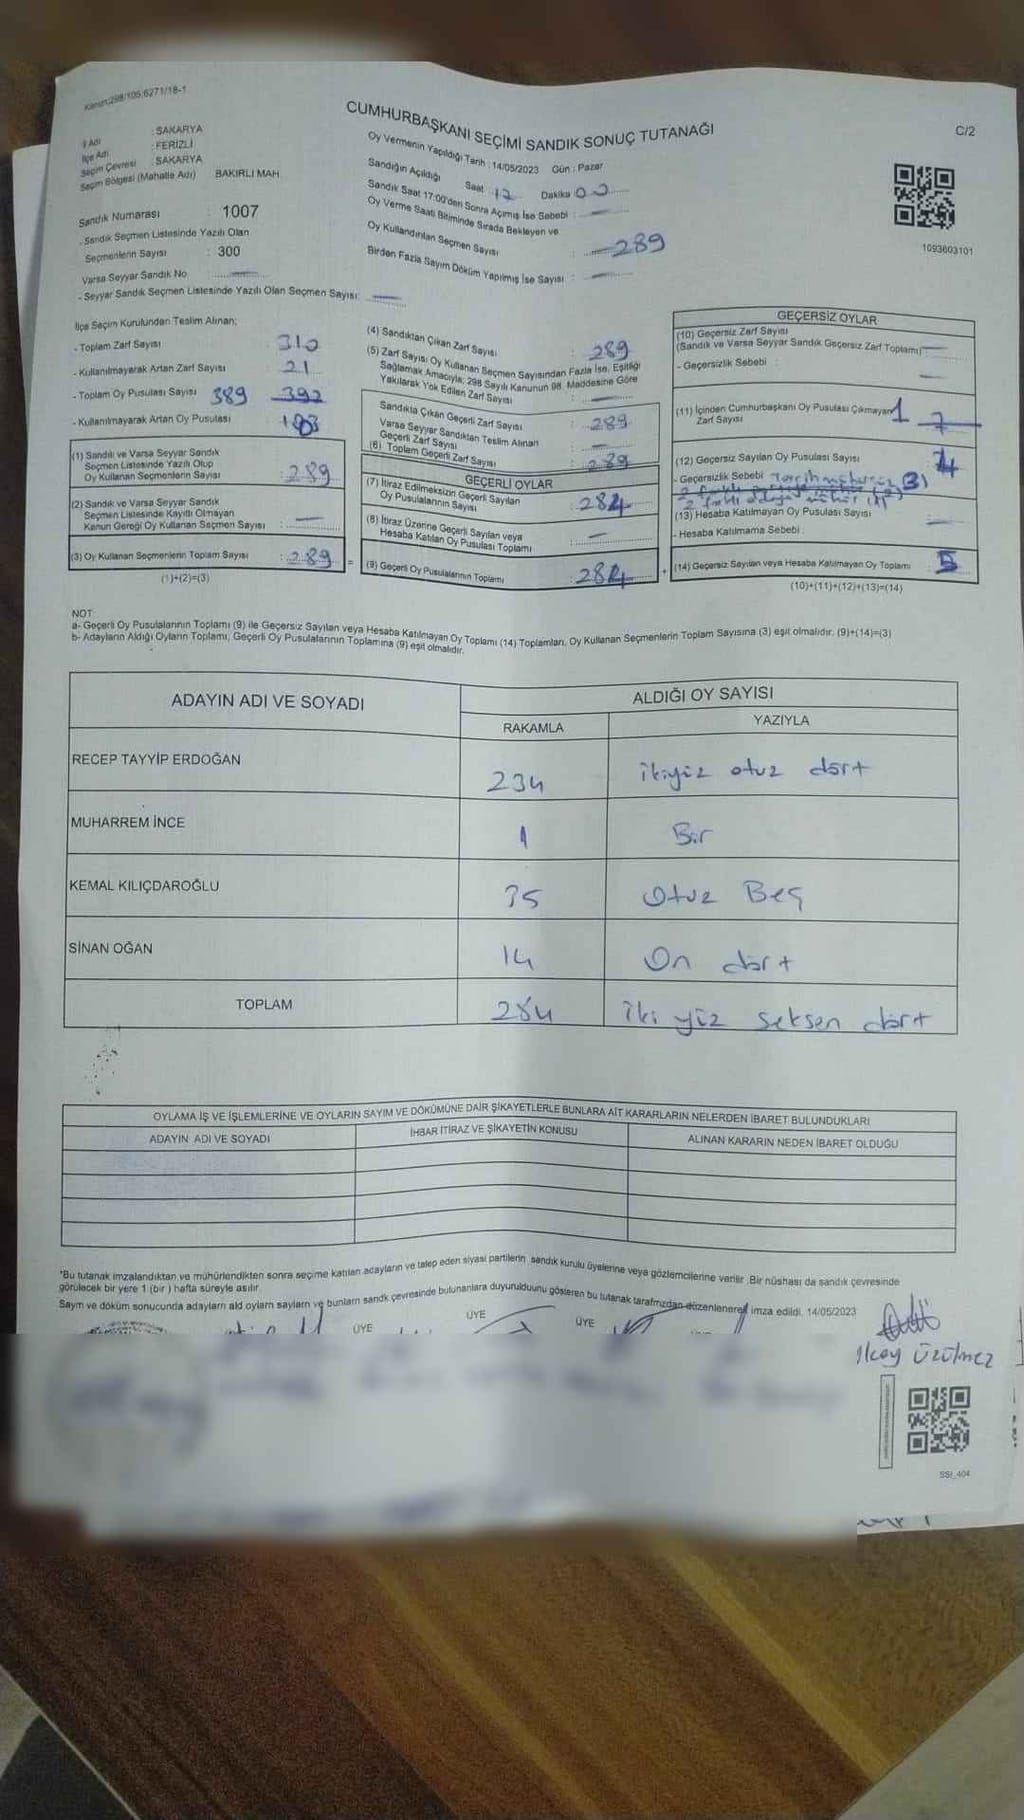 Kanun:298/105;6271/18-1
CUMHURBAŞKANI SEÇİMİ SANDIK SONUÇ TUTANAĞI
C/2
İl Adı : SAKARYA
İlçe Adı : FERİZLİ
Seçim Çevresi : SAKARYA
Seçim Bölgesi (Mahalle Adı) BAKIRLI MAH.
Sandık Numarası : 1007
- Sandık Seçmen Listesinde Yazılı Olan
Seçmenlerin Sayısı : 300
Varsa Seyyar Sandık No :
- Seyyar Sandık Seçmen Listesinde Yazılı Olan Seçmen Sayısı:
Oy Vermenin Yapıldığı Tarih : 14/05/2023 Gün : Pazar
Sandığın Açıldığı Saat : 17 Dakika 00
Sandık Saat 17:00'den Sonra Açılmış İse Sebebi :
Oy Verme Saati Bitiminde Sırada Bekleyen ve
Oy Kullandırılan Seçmen Sayısı : 289
Birden Fazla Sayım Döküm Yapılmış İse Sayısı :
1093603101
İlçe Seçim Kurulundan Teslim Alınan;
- Toplam Zarf Sayısı : 310
- Kullanılmayarak Artan Zarf Sayısı : 21
- Toplam Oy Pusulası Sayısı 389 392
- Kullanılmayarak Artan Oy Pusulası
(1) Sandık ve Varsa Seyyar Sandık
Seçmen Listesinde Yazılı Olup
Oy Kullanan Seçmenlerin Sayısı : 289
(2) Sandık ve Varsa Seyyar Sandık
Seçmen Listesinde Kayıtlı Olmayan
Kanun Gereği Oy Kullanan Seçmen Sayısı :
(3) Oy Kullanan Seçmenlerin Toplam Sayısı : 289
(1)+(2)=(3)
(4) Sandıktan Çıkan Zarf Sayısı : 289
(5) Zarf Sayısı Oy Kullanan Seçmen Sayısından Fazla İse, Eşitliği
Sağlamak Amacıyla; 298 Sayılı Kanunun 98. Maddesine Göre
Yakılarak Yok Edilen Zarf Sayısı :
Sandıkta Çıkan Geçerli Zarf Sayısı : 289
Varsa Seyyar Sandıktan Teslim Alınan
Geçerli Zarf Sayısı :
(6) Toplam Geçerli Zarf Sayısı : 289
GEÇERLİ OYLAR
(7) İtiraz Edilmeksizin Geçerli Sayılan
Oy Pusulasının Sayısı : 284
(8) İtiraz Üzerine Geçerli Sayılan veya
Hesaba Katılan Oy Pusulası Toplamı :
(9) Geçerli Oy Pusulalarının Toplamı : 284
GEÇERSİZ OYLAR
(10) Geçersiz Zarf Sayısı
(Sandık ve Varsa Seyyar Sandık Geçersiz Zarf Toplamı)
- Geçersizlik Sebebi :
(11) İçinden Cumhurbaşkanı Oy Pusulası Çıkmayan 1
Zarf Sayısı
(12) Geçersiz Sayılan Oy Pusulası Sayısı 4
- Geçersizlik Sebebi
(13) Hesaba Katılmayan Oy Pusulası Sayısı
- Hesaba Katılmama Sebebi :
(14) Geçersiz Sayılan veya Hesaba Katılmayan Oy Toplamı 5
(10)+(11)+(12)+(13)=(14)
NOT:
a- Geçerli Oy Pusulalarının Toplamı (9) ile Geçersiz Sayılan veya Hesaba Katılmayan Oy Toplamı (14) Toplamları, Oy Kullanan Seçmenlerin Toplam Sayısına (3) eşit olmalıdır. (9)+(14)=(3)
b- Adayların Aldığı Oyların Toplamı, Geçerli Oy Pusulalarının Toplamına (9) eşit olmalıdır.
ADAYIN ADI VE SOYADI
ALDIĞI OY SAYISI
RAKAMLA YAZIYLA
RECEP TAYYİP ERDOĞAN 234 ikiyüz otuz dört
MUHARREM İNCE 1 Bir
KEMAL KILIÇDAROĞLU 35 Otuz Beş
SİNAN OĞAN 14 On dört
TOPLAM 284 iki yüz seksen dört
OYLAMA İŞ VE İŞLEMLERİNE VE OYLARIN SAYIM VE DÖKÜMÜNE DAİR ŞİKAYETLERLE BUNLARA AİT KARARLARIN NELERDEN İBARET BULUNDUKLARI
ADAYIN ADI VE SOYADI İHBAR İTİRAZ VE ŞİKAYETİN KONUSU ALINAN KARARIN NEDEN İBARET OLDUĞU
*Bu tutanak imzalandıktan ve mühürlendikten sonra seçime katılan adayların ve talep eden siyasi partilerin sandık kurulu üyelerine veya gözlemcilerine verilir .Bir nüshası da sandık çevresinde
görülecek bir yere 1 (bir ) hafta süreyle asılır.
Sayım ve döküm sonucunda adayların ald oyların sayları ve bunların sandk çevresinde bulunanlara duyurulduunu gösteren bu tutanak tarafımızdan düzenlenerek imza edildi. 14/05/2023
ÜYE ÜYE ÜYE
İlkay Üzülmez
SSI_404